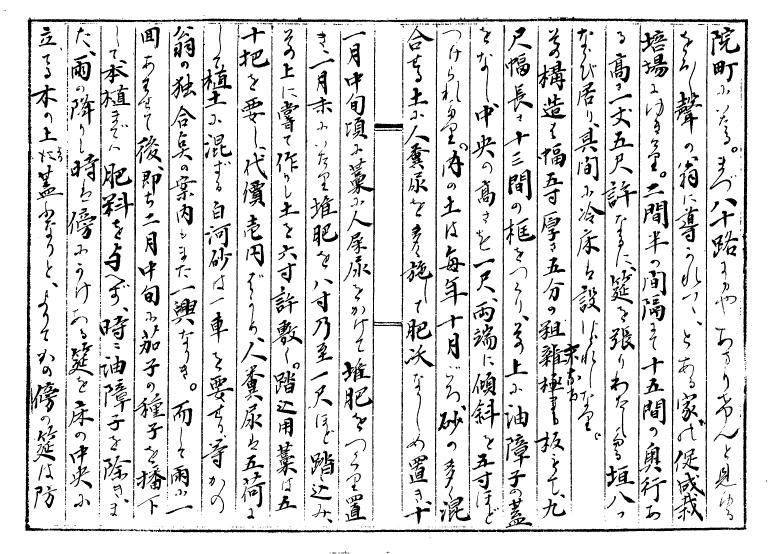 院町にいたる。まづ八十路にやあまりなんと見ゆる
をろし聲の翁に導かれて、とある家の促成栽
培場にゆきけり。二間半の間隔にて十五間の奥行あ
る高さ一丈五尺許なるに、筵を張りわたしたる垣八つ
ならび居り、其間に冷床は設けられしなり。
その構造は幅五寸厚さ五分の粗雜極まる板もて、九
尺幅長さ十三間の框をつくり、その上に油障子の蓋
をなし、中央の高さを一尺、両端に傾斜を五寸ほど
つけられたり。内の土は毎年十月ごろ砂の多く混
合せる土に人糞尿を多く施して肥沃ならしめ置き、十
一月中旬頃に藁に人尿尿をかけて堆肥をつくり置
き、一月末にいたり堆肥を八寸乃至一尺ほど踏み込み、
その上に嘗て作りし土を六寸許敷く。踏込用藁は五
十把を要し、代價壱円ばかり、人糞尿は五荷に
して植土に混ずる白河砂は一車を要する等かの
翁の独合点の案内もまた一興なりき。而して雨に一
回あはせて後、即ち二月中旬に茄子の種子を播下
して本植までは肥料を与へず、時に油障子を除き、ま
た、雨の降りし時は傍にかけある筵を床の中央に
立てる木の上に蓋ふなりと、よてかの傍の筵は防